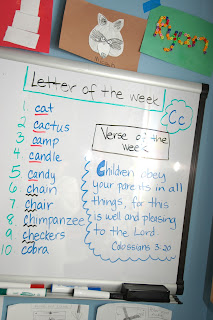 Ryan
Letter of the week
Cc
1. cat
2 cactus
3 camp
4. candle
5 candy
6 chain
7. chair
8. chimpanzee
9. checkers
10 cobra
Verse of the
week
Children obey
your parents in all
things, for this
is well and pleasing
to the Lord.
Colossians 3:20